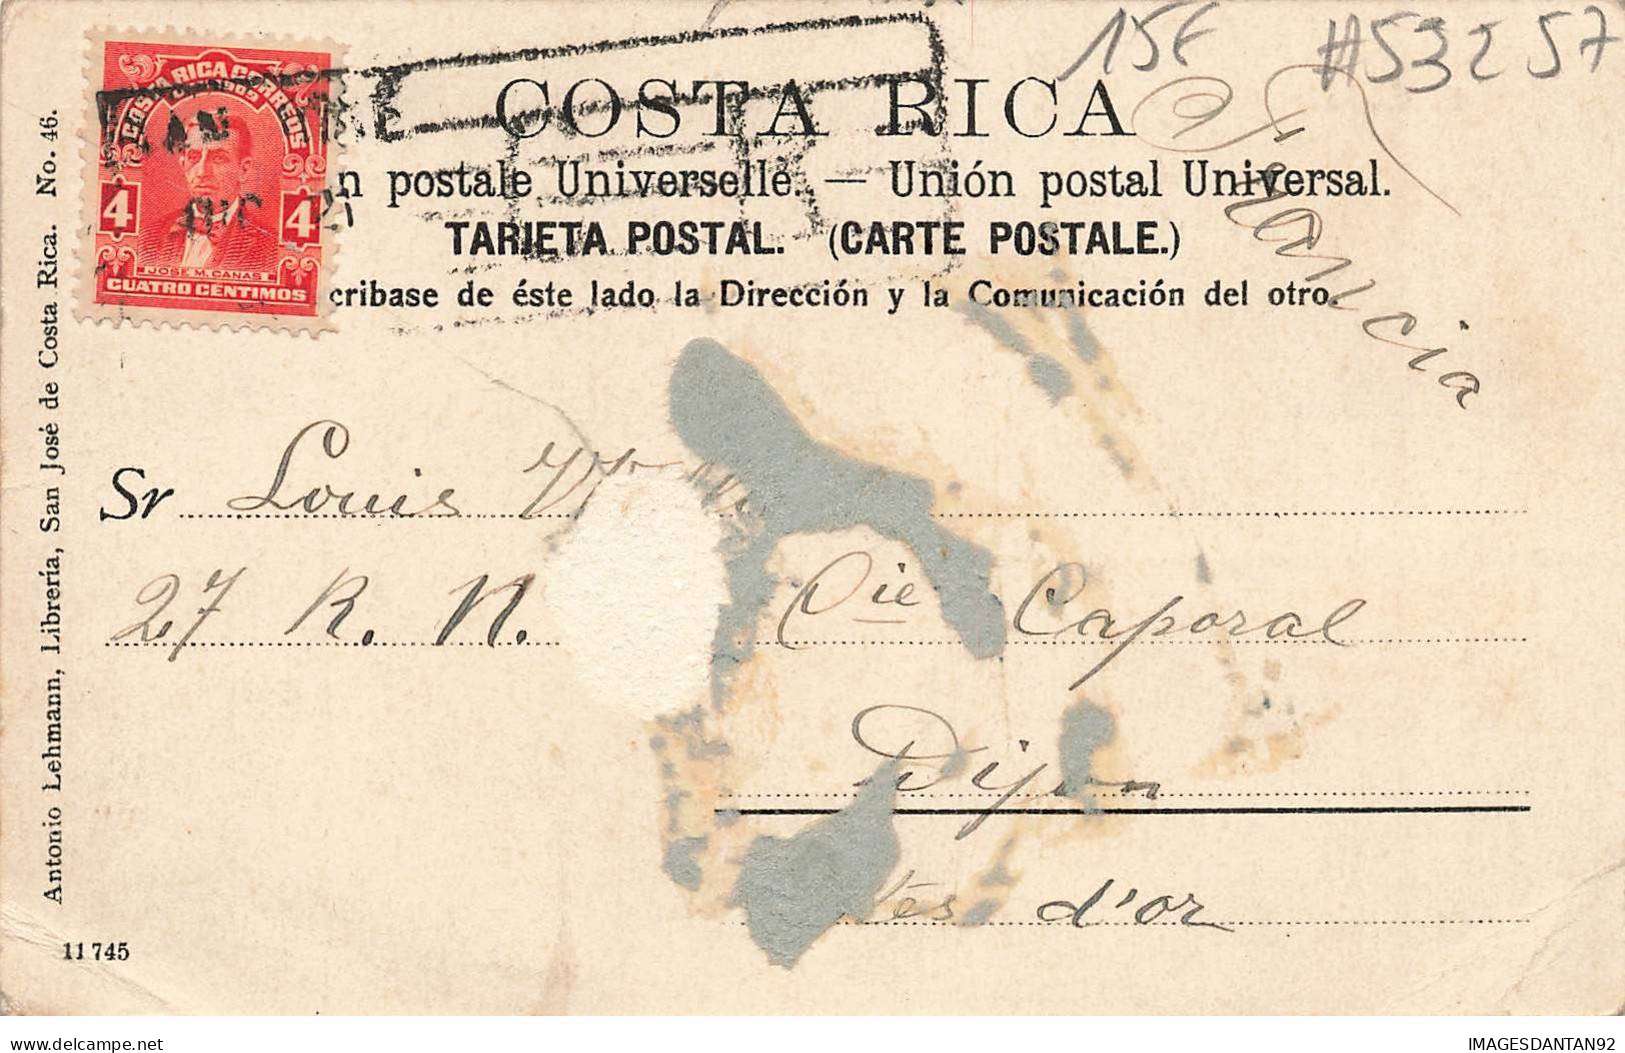 15€ #53257
COSTA RICA CORREOS
4 4
JOSÉ M. CAÑAS
CUATRO CENTIMOS
COSTA RICA
n postale Universelle. — Unión postal Universal.
TARJETA POSTAL. (CARTE POSTALE.)
cribase de éste lado la Dirección y la Comunicación del otro.
Francia
Sr Louis
27 R. N. Cie Caporal
Dijon
tes d'or
Antonio Lehmann, Librería, San José de Costa Rica. No. 46.
11745
delcampe.net
IMAGESDANTAN92